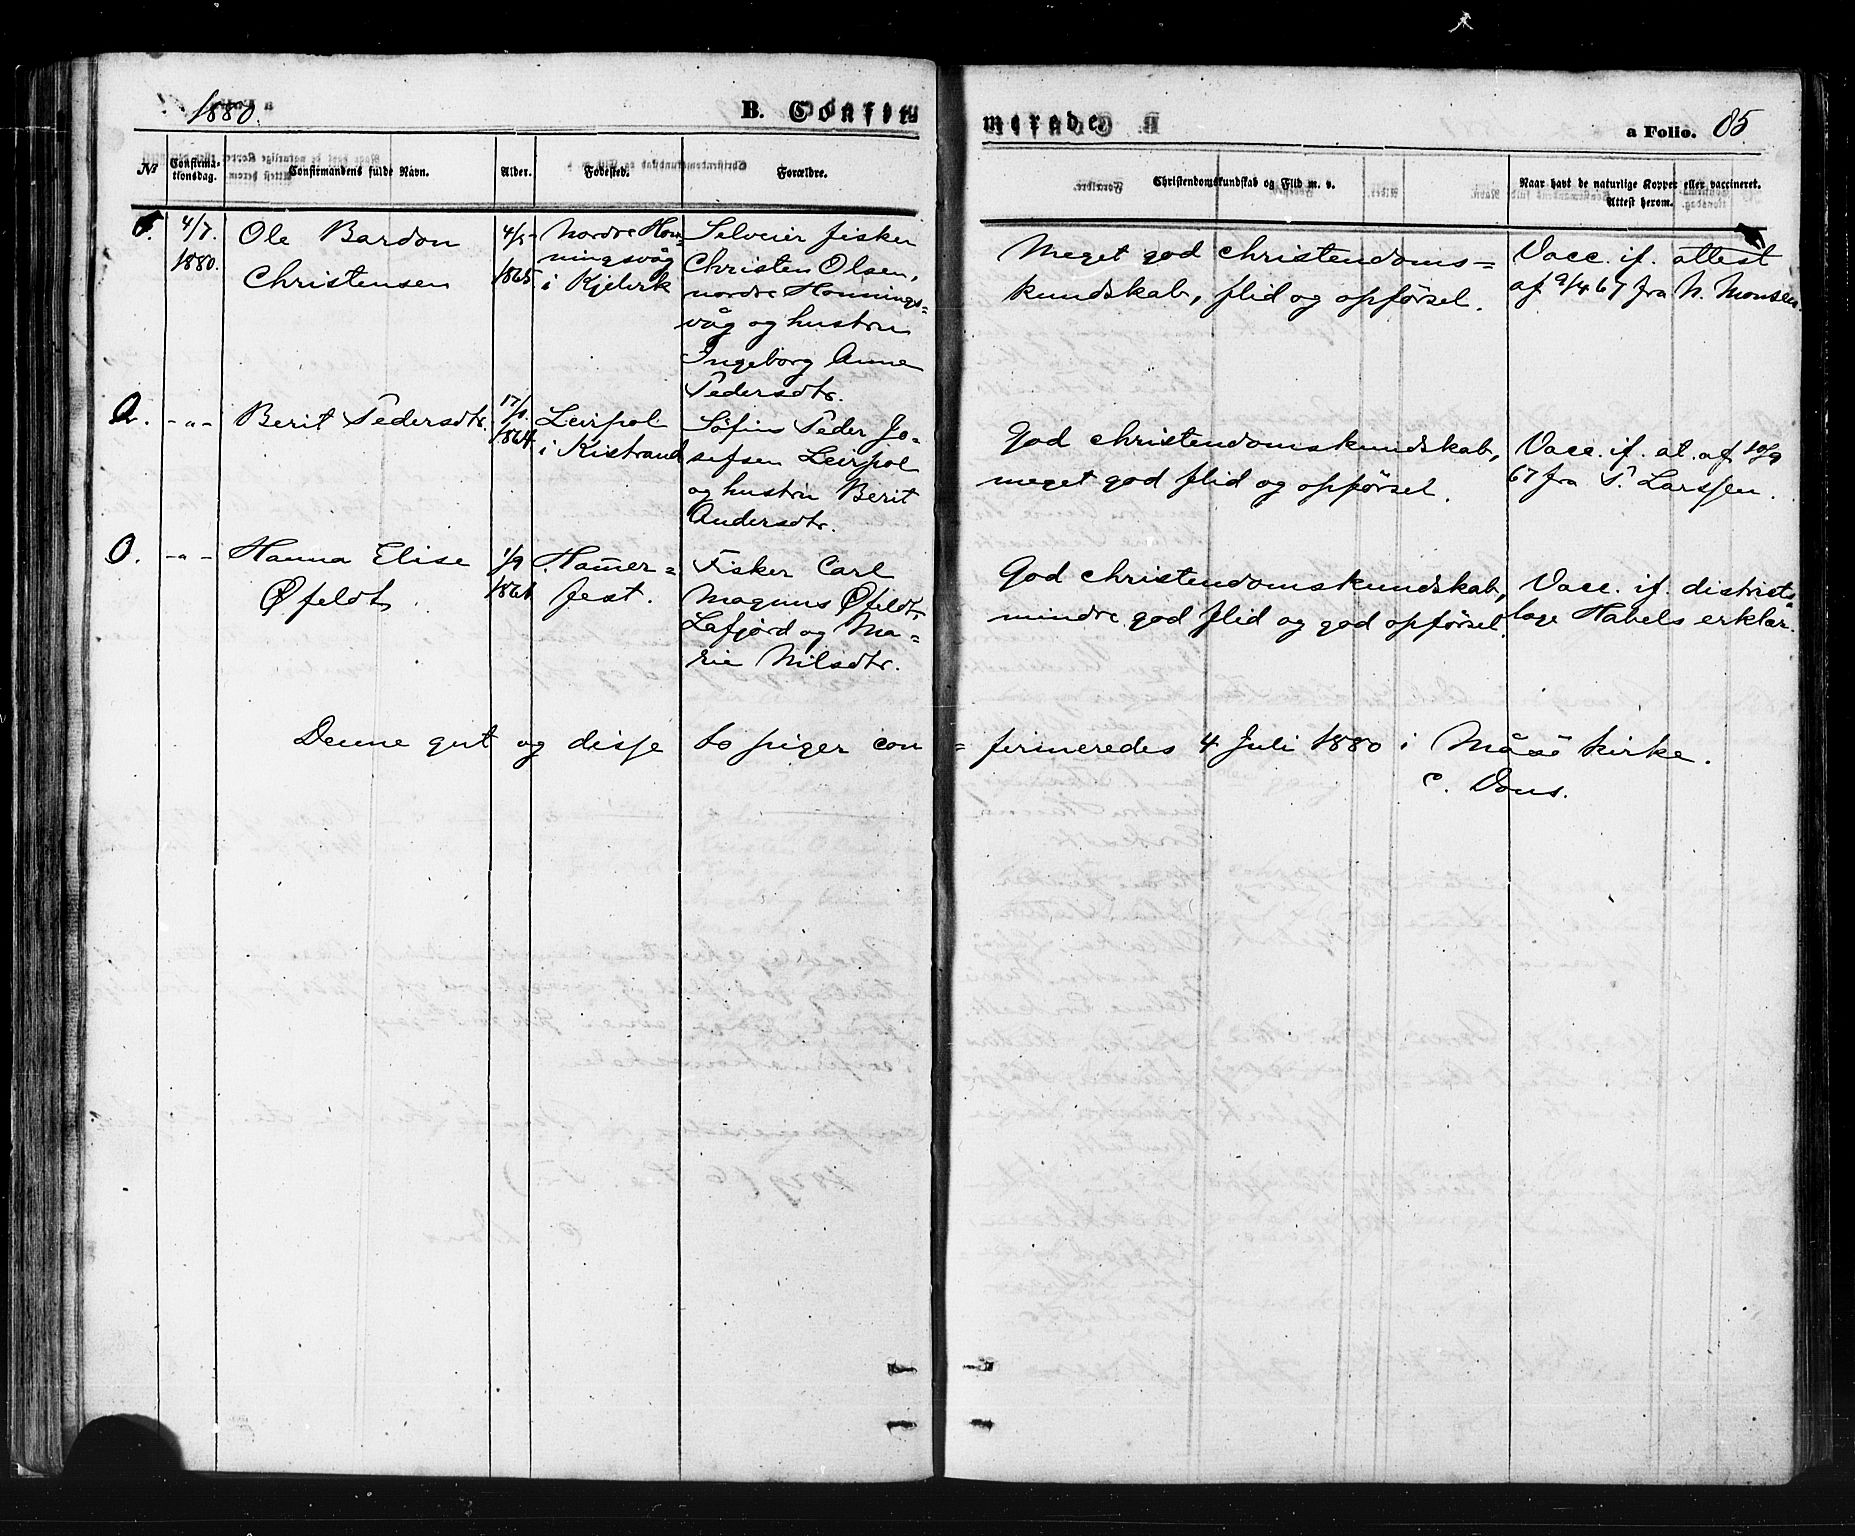 1880.
B. Confirmerede
a Folio. 85
No
Confirmationsdag.
Confirmandens fulde Navn.
Alder.
Fødested.
Forældre.
Christendomskundskab og Flid m. v.
Naar havt de naturlige Kopper eller vaccineret.
Attest herom.
4/7.
1880.
Ole Bardon
Christensen
1865
Nordre Hon-
ningsvåg
i Kjelvik
fisker
Christen Olsen,
nordre Honnings-
våg og hustru
Ingeborg Anne
Pedersdtr.
Meget god christendoms=
kundskab, flid og opførsel.
Vacc. if. attest
af 9/4 67 fra N. Monsen.
2.
-"-
Berit Pedersdtr.
17/1
1864
Leirpol
i Kistrand
Søfin Peder Jo-
sefsen Leirpol
og hustru Berit
Andersdtr.
God christendomskundskab,
meget god flid og opførsel.
Vacc. if. at. af 10/9
67 fra P. Larssen.
3.
-"-
Hanna Elise
Øfeldt
1/9
1864
Hamer=
fest.
Fisker Carl
Magnus Øfeldt,
Lafjord og Ma=
rie Nilsdtr.
God christendomskundskab,
mindre god flid og god opførsel.
Vacc. if. districts=
læge Habels erklær.
Denne gut og disse to piger con= firmeredes 4 Juli 1880 i Måsø kirke.
C. Dons.